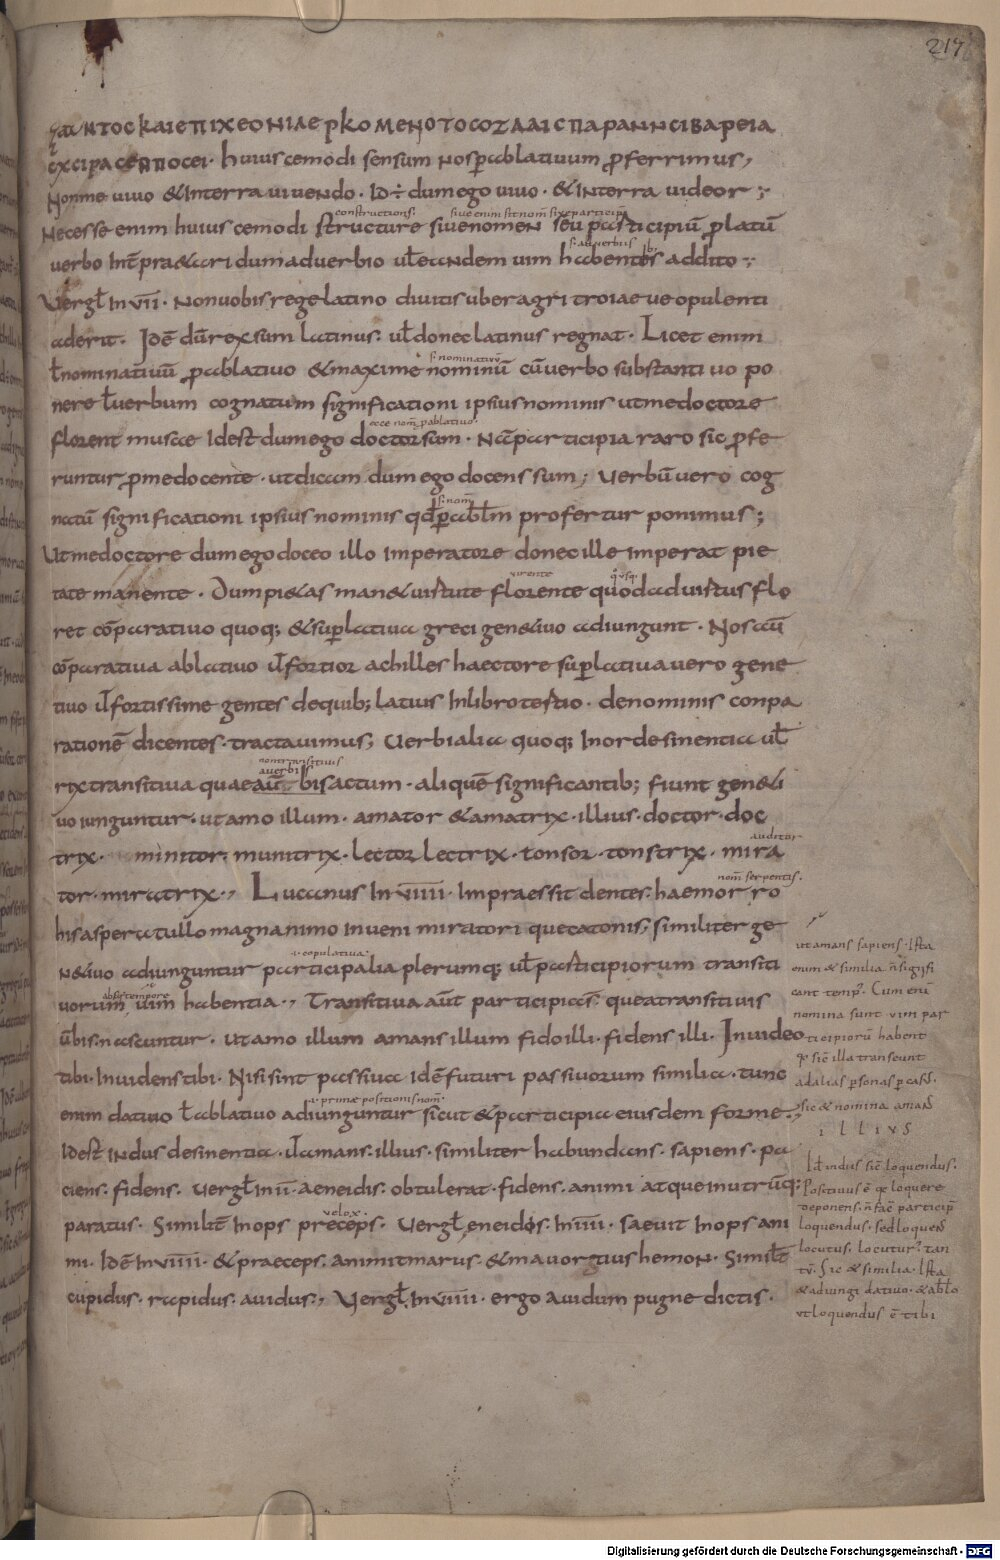 217
ΖωΝΤΟС ΚΑΙ ΕΠΙΧΕΟΝΙ ΔΕΡΚΟΜΕΝΟΤΟСΟΖΔΑΙСΠΑΡΑΝΝСΙΒΑΡΕΙΑ
huius cemodi sensum nos p ablatiuum ꝓferrimus;
Nonme uiuo & interra uiuendo · Id ÷ dum ego uiuo · & interra uideor ;
constructionis · siue enim sit nom̄ siue particip̄
Necesse enim huius cemodi structure siue nomen seu participiū ꝓlatū
s· aduerbiis
uerbo Int̄pra&ari dum aduerbio uł eandem uim habentes addito ;
Uergł In vii · Nonuobis rege latino diuitis uber agri troiaeue opulenti
aderit · Idē dū rex sum latinus · uł donec latinus regnat · Licet enim
s· nominatiuū
ł nominatiuū ꝓ ablatiuo & maxime nominū cū uerbo substantiuo po
nere ł uerbum cognatum significationi ipsius nominis ut me doctore
ecce nom̄ p ablatiuo·
florent musae Idest dum ego doctor sum · Nā participia raro sic ꝓfe
runtur ꝓ me docente · ut dicam dum ego docens sum ; Uerbū uero cog
s· nom̄
natū significationi ipsius nominis qđ p abłm profertur ponimus ;
Ut me doctore dum ego doceo illo imperatore donec ille imperat pie
uirente quusq·
tate manente · Dum pi&as man& uirtute florente quoda duirtus flo
ret cōparatiuo quoq; & supłatiua greci gen&iuo adiungunt · Nos aū
cōparatiua ablatiuo uł fortior achilles haectore supłatiua uero gene
tiuo uł fortissime gentes de quib; latius In libro tertio · de nominis conpa
rationē dicentes · tractauimus; Uerbialia quoq; In or desinentia uł
nontransitiuis
auerbis
rix transitiua quae aū bis actum · aliquē significantib; fiunt gen&i
uo iunguntur · ut amo illum · amator & amatrix · illius · doctor · doc
auditor
trix · minitor · munitrix · lector lectrix · tonsor · tonstrix · mira
nom̄ serpentis·
tor · miratrix ·, Lucanus In viiii · Impraessit dentes · haemorro
his aspera tullo magnanimo Inueni miratori que catonis; similiter ge
·i· copulatiua
n&iuo adiunguntur participalia plerumq; uł participiorum transiti
absq· tempore
uorum uim habentia ·, Transitiua aūt participia s̄ · que a transitiuis
ūbis · nascuntur · ut amo illum amans illum fido illi · fidens illi · Inuideo
tibi · Inuidens tibi · Nisi sint passiua Idē futuri passiuorum similia · tunc
·i· prime positionis nom̄·
enim datiuo ł ablatiuo adiunguntur sicut & participia eiusdem forme ·,
Idest In dus desinentia · uł amans · illius · similiter habundans · sapiens · pa
ciens · fidens · Uergł In ii · aeneidis · obtulerat · fidens · animi atque In utrūq;
velox ·
paratus · Similit̄ Inops preceps · Uergł eneidos · In iiii · saeuit Inops ani
mi · Idē In viiii · & praeceps · animi tmarus · & mauortius hemon · Similit̄
cupidus · rapidus · auidus ·, Uergł In viiii · ergo auidum pugne dictis ·
ut amans sapiens · Ista
enim & similia n̄ signifi
cant temp̄ · Cum enī
nomina sunt vim par
ticipiorū habent
ꝙ sic̄ illa transeunt
ad alias psonas p casus·
sic & nomina amans
illius
Id̄ indus sic̄ loquendus ·
Positiuus ē ꝙ loquere
deponens · n̄ facē particip̄
loquendus · sed loquens
locutus · locuturus tan
tū · Sic & similia · Ista
& adiungi datiuo · & abło
ut loquendus ē tibi
Digitalisierung gefördert durch die Deutsche Forschungsgemeinschaft - DFG